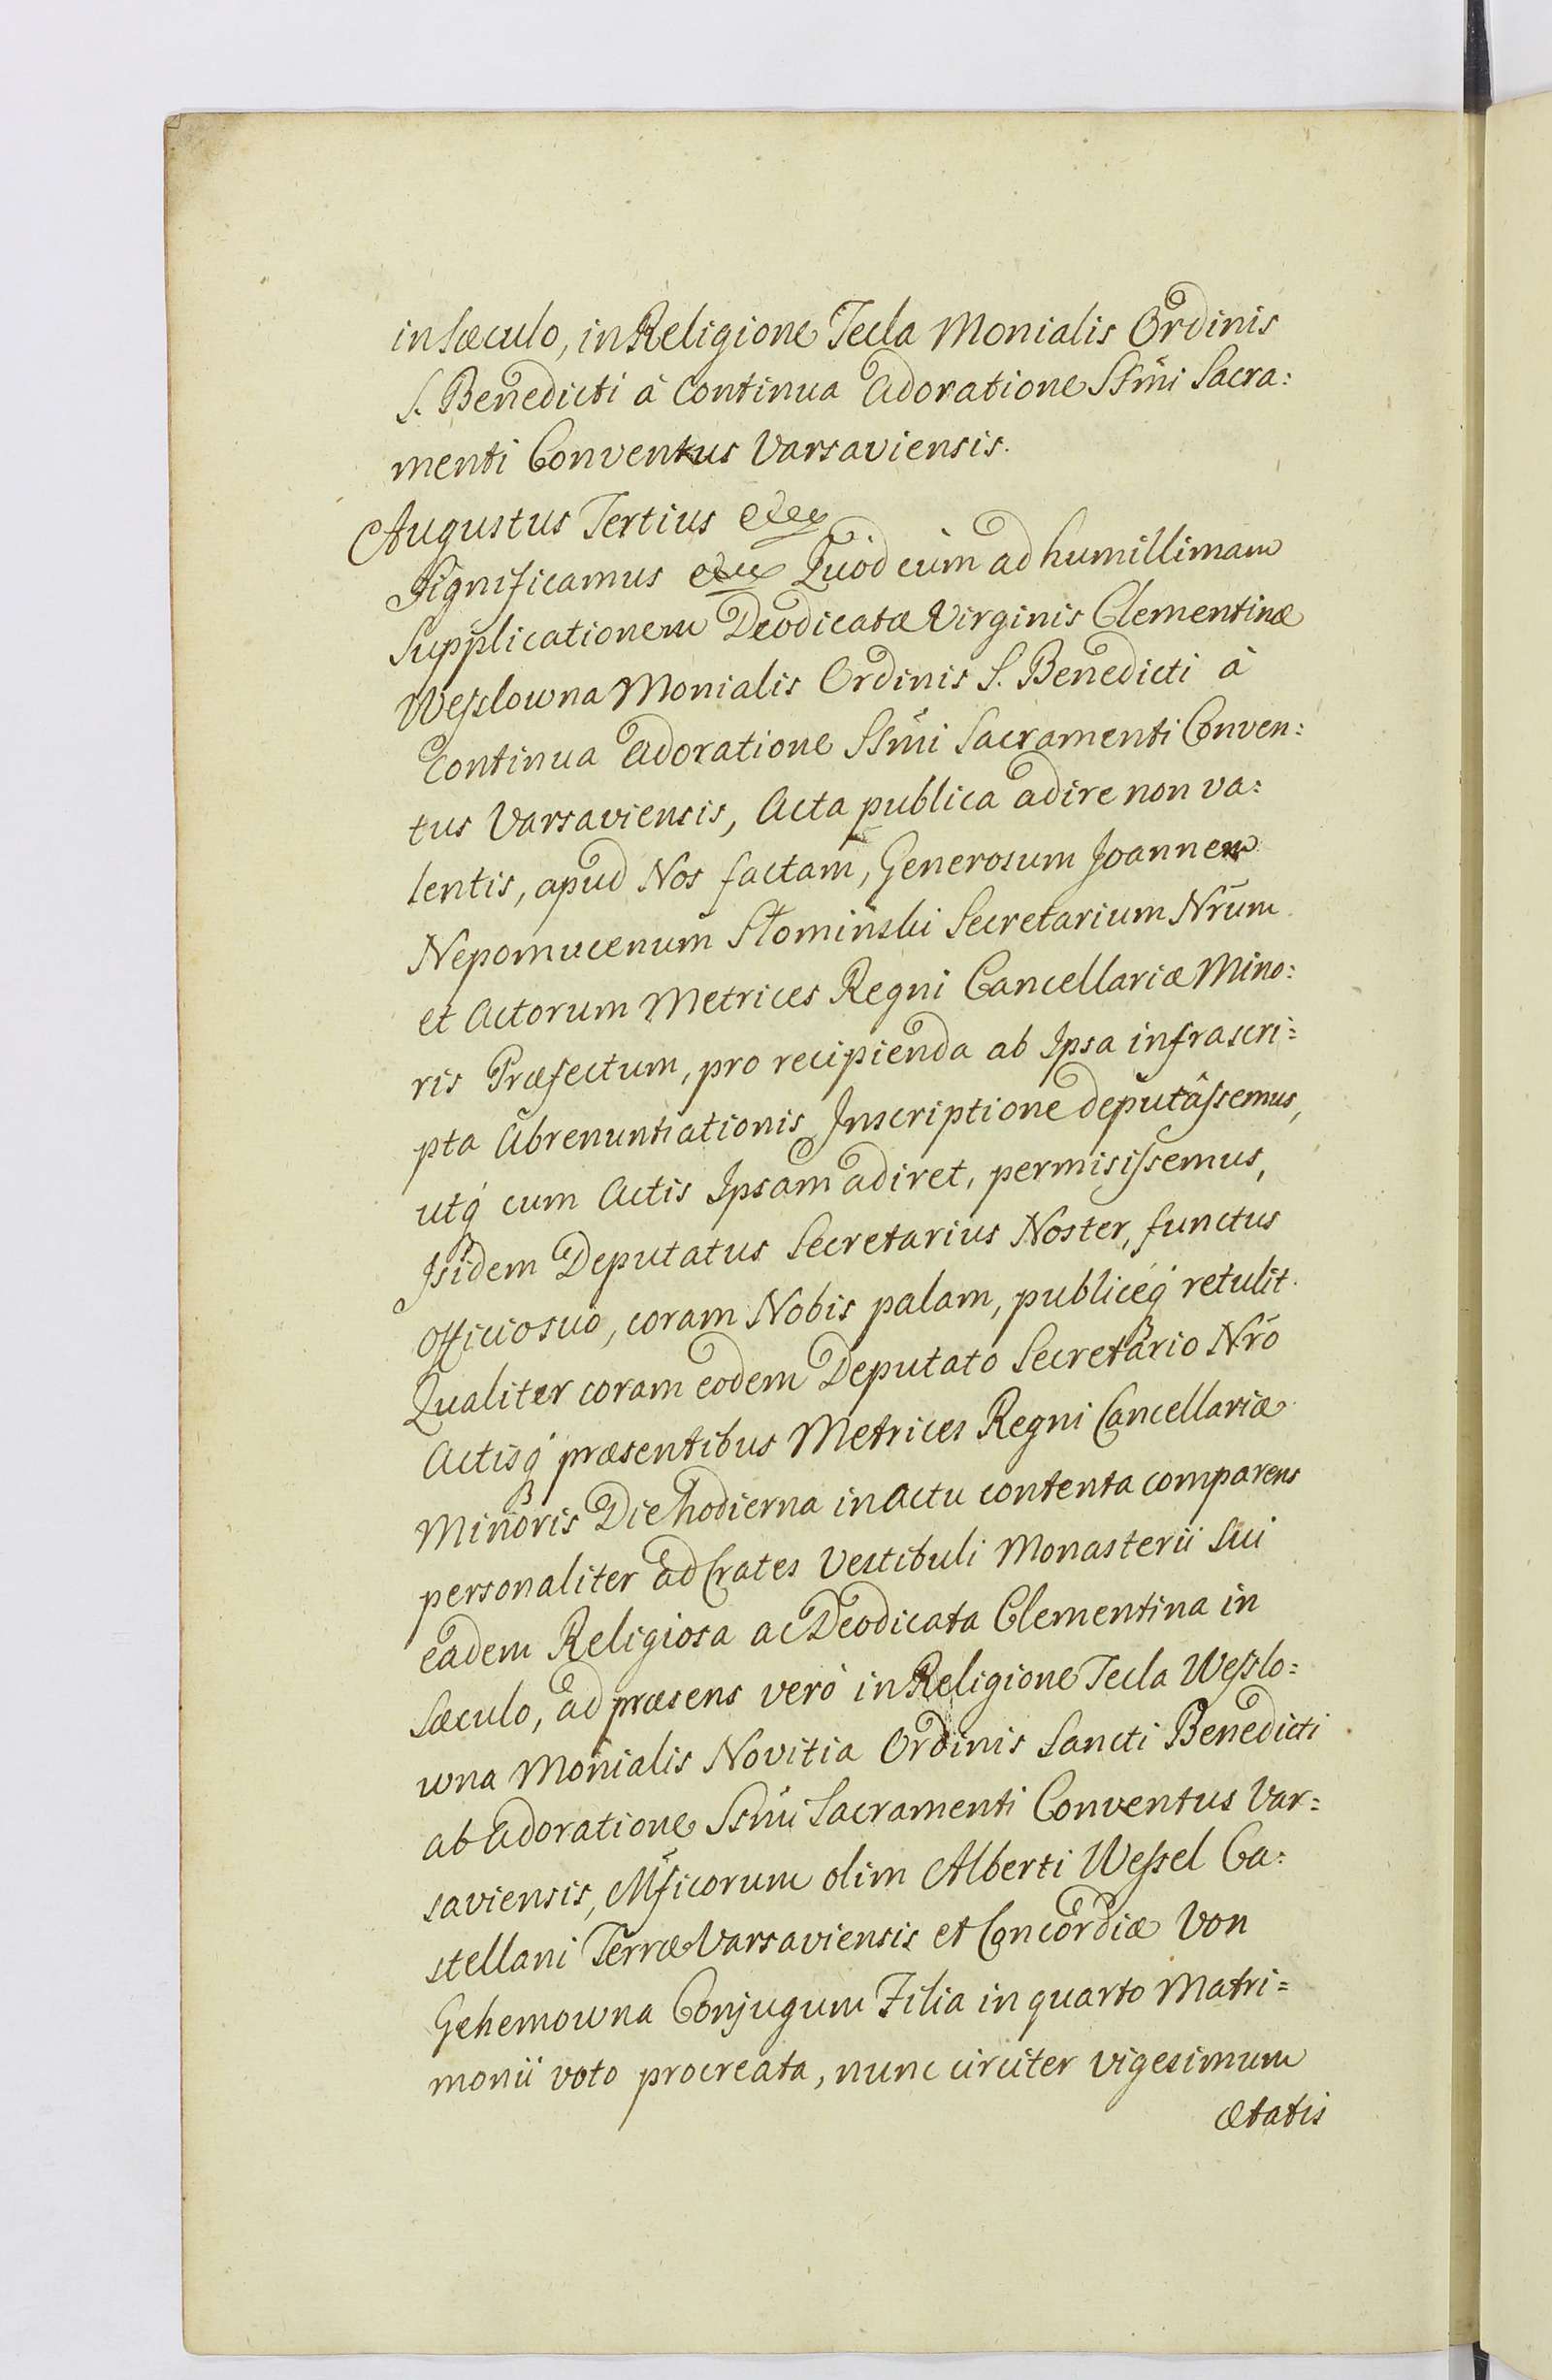 in Sæculo, in Religione Tecla Monialis Ordinis
S. Benedicti à Continua Adoratione SSm̃i Sacra:
menti Conventus Varsaviensis.
Augustus Tertius etc
Significamus etc Quod cùm ad humillimam
Supplicationem Deodicatæ Virginis Clementinæ
Wesslowna Monialis Ordinis S. Benedicti à
Continua Adoratione SSm̃i Sacramenti Conven:
tus Varsaviensis, Acta publica adire non va:
lentis, apud Nos factam, Generosum Joannem
Nepomucenum Słominski Secretarium Nr̃um
et Actorum Metrices Regni Cancellariæ Mino:
ris Præfectum, pro recipienda ab Ipsa infrascri:
pta Abrenuntiationis Inscriptione deputâssemus,
utq́ cum Actis Ipsam adiret, permisissemus,
Isidem Deputatus Secretarius Noster, functus
Officio suo, coram Nobis palam, publicéq́ retulit.
Qualiter coram eodem Deputato Secretario Nr̃o
Actisq́ præsentibus Metrices Regni Cancellariæ
Minoris Die hodierna in Actu contenta comparens
personaliter ad Crates Vestibuli Monasterii Sui
eadem Religiosa ac Deodicata Clementina in
Sæculo, ad præsens verò in Religione Tecla Wesslo:
wna Monialis Novitia Ordinis Sancti Benedicti
ab Adoratione SSm̃i Sacramenti Conventus Var:
saviensis, Mficorum olim Alberti Wessel Ca:
stellani Terræ Varsaviensis et Concordiæ Von
Gehemowna Conjugum Filia in quarto Matri:
monii voto procreata, nunc circiter vigesimum
ætatis